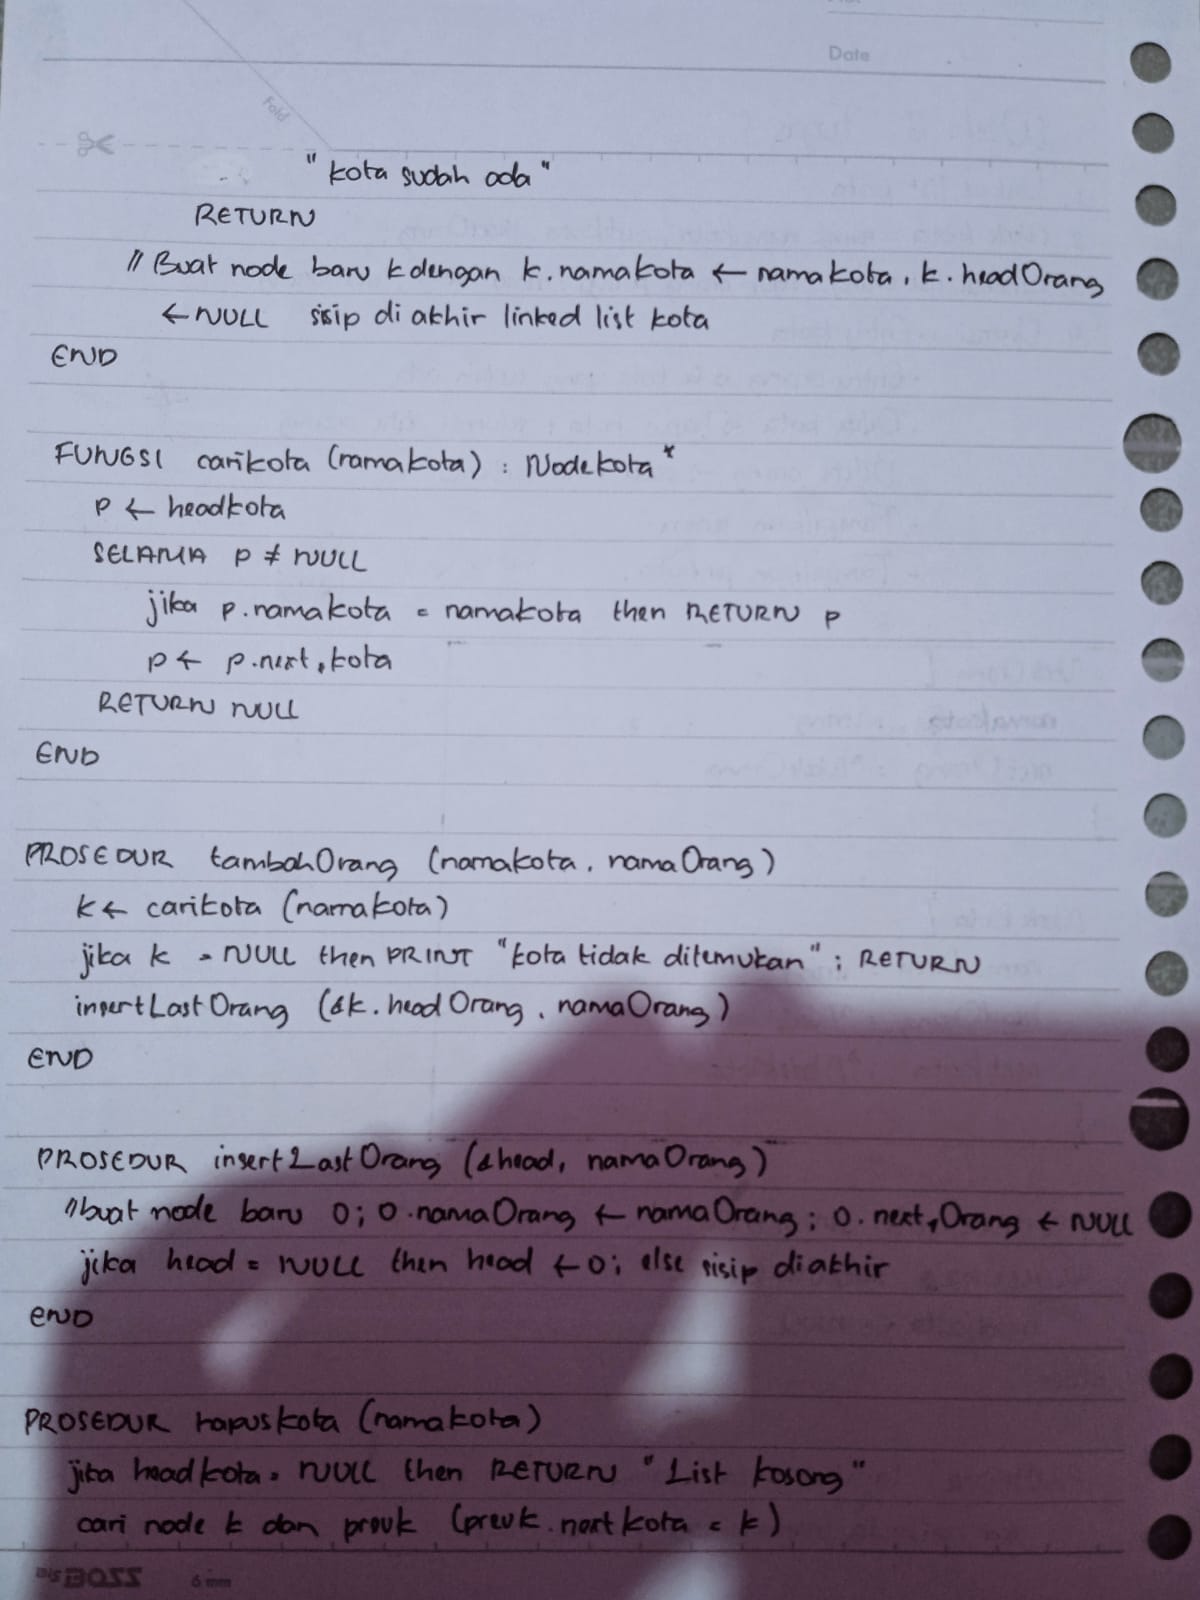 Date
Fold
"kota sudah ada"
RETURN
// Buat node baru k dengan k.namakota ← namakota, k.headOrang
← NULL sisip di akhir linked list kota
END
FUNGSI carikota (namakota) : Nodekota *
P ← headkota
SELAMA P ≠ NULL
jika p.namakota = namakota then RETURN p
p ← p.next,kota
RETURN NULL
END
PROSEDUR tambahOrang (namakota, namaOrang)
k ← carikota (namakota)
jika k = NULL then PRINT "kota tidak ditemukan" ; RETURN
insertLastOrang (&k.headOrang, namaOrang)
END
PROSEDUR insertLastOrang (&head, namaOrang)
//buat node baru O; O.namaOrang ← namaOrang; O.next,Orang ← NULL
jika head = NULL then head ← O; else sisip diakhir
END
PROSEDUR hapuskota (namakota)
jika headkota = NULL then RETURN "List kosong"
cari node k dan prevk (prevk.nextkota = k)
BOSS 6 mm